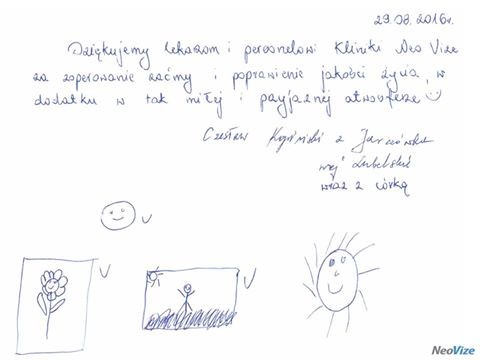 29.08.2016r.
Dziękujemy lekarzom i personelowi Kliniki Neo Vize
za zoperowanie zaćmy i poprawienie jakości życia, w
dodatku w tak miłej i przyjaznej atmosferze
Czesław z
woj. Lubelskie
wraz z córką
NeoVize